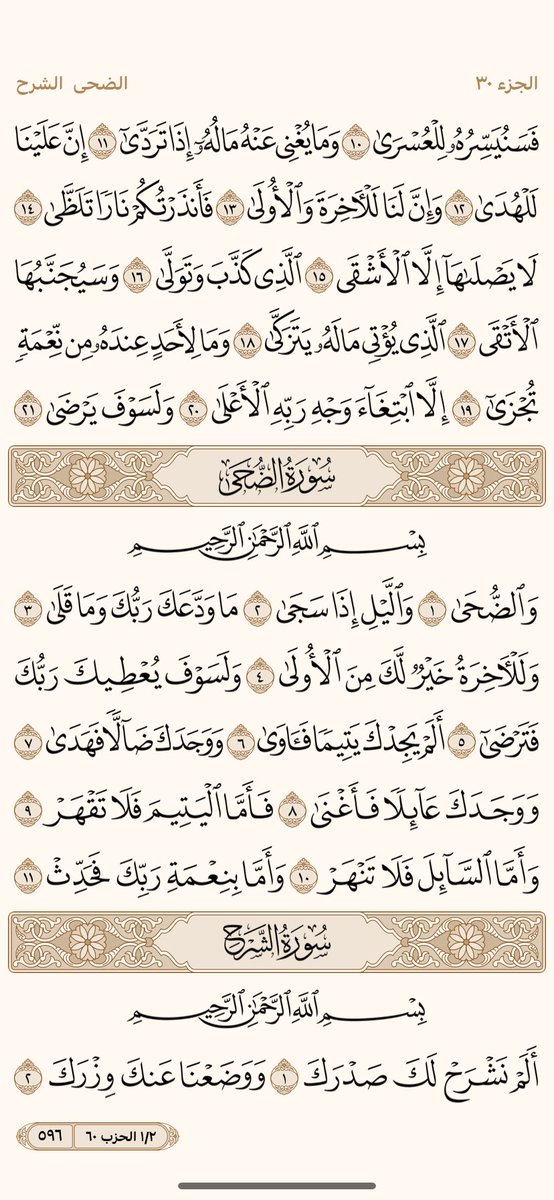 الجزء ٣٠
الضحى الشرح
فَسَنُيَسِّرُهُۥ لِلْعُسْرَىٰ ١٠ وَمَا يُغْنِى عَنْهُ مَالُهُۥٓ إِذَا تَرَدَّىٰٓ ١١ إِنَّ عَلَيْنَا
لَلْهُدَىٰ ١٢ وَإِنَّ لَنَا لَلْـَٔاخِرَةَ وَٱلْأُولَىٰ ١٣ فَأَنذَرْتُكُمْ نَارًا تَلَظَّىٰ ١٤
لَا يَصْلَىٰهَآ إِلَّا ٱلْأَشْقَى ١٥ ٱلَّذِى كَذَّبَ وَتَوَلَّىٰ ١٦ وَسَيُجَنَّبُهَا
ٱلْأَتْقَى ١٧ ٱلَّذِى يُؤْتِى مَالَهُۥ يَتَزَكَّىٰ ١٨ وَمَا لِأَحَدٍ عِندَهُۥ مِن نِّعْمَةٍ
تُجْزَىٰٓ ١٩ إِلَّا ٱبْتِغَآءَ وَجْهِ رَبِّهِ ٱلْأَعْلَىٰ ٢٠ وَلَسَوْفَ يَرْضَىٰ ٢١
سُورَةُ الضُّحَىٰ
بِسْمِ ٱللَّهِ ٱلرَّحْمَٰنِ ٱلرَّحِيمِ
وَٱلضُّحَىٰ ١ وَٱلَّيْلِ إِذَا سَجَىٰ ٢ مَا وَدَّعَكَ رَبُّكَ وَمَا قَلَىٰ ٣
وَلَلْـَٔاخِرَةُ خَيْرٌ لَّكَ مِنَ ٱلْأُولَىٰ ٤ وَلَسَوْفَ يُعْطِيكَ رَبُّكَ
فَتَرْضَىٰٓ ٥ أَلَمْ يَجِدْكَ يَتِيمًا فَـَٔاوَىٰ ٦ وَوَجَدَكَ ضَآلًّا فَهَدَىٰ ٧
وَوَجَدَكَ عَآئِلًا فَأَغْنَىٰ ٨ فَأَمَّا ٱلْيَتِيمَ فَلَا تَقْهَرْ ٩
وَأَمَّا ٱلسَّآئِلَ فَلَا تَنْهَرْ ١٠ وَأَمَّا بِنِعْمَةِ رَبِّكَ فَحَدِّثْ ١١
سُورَةُ الشَّرْحِ
بِسْمِ ٱللَّهِ ٱلرَّحْمَٰنِ ٱلرَّحِيمِ
أَلَمْ نَشْرَحْ لَكَ صَدْرَكَ ١ وَوَضَعْنَا عَنكَ وِزْرَكَ ٢
١/٢ الحزب ٦٠
٥٩٦